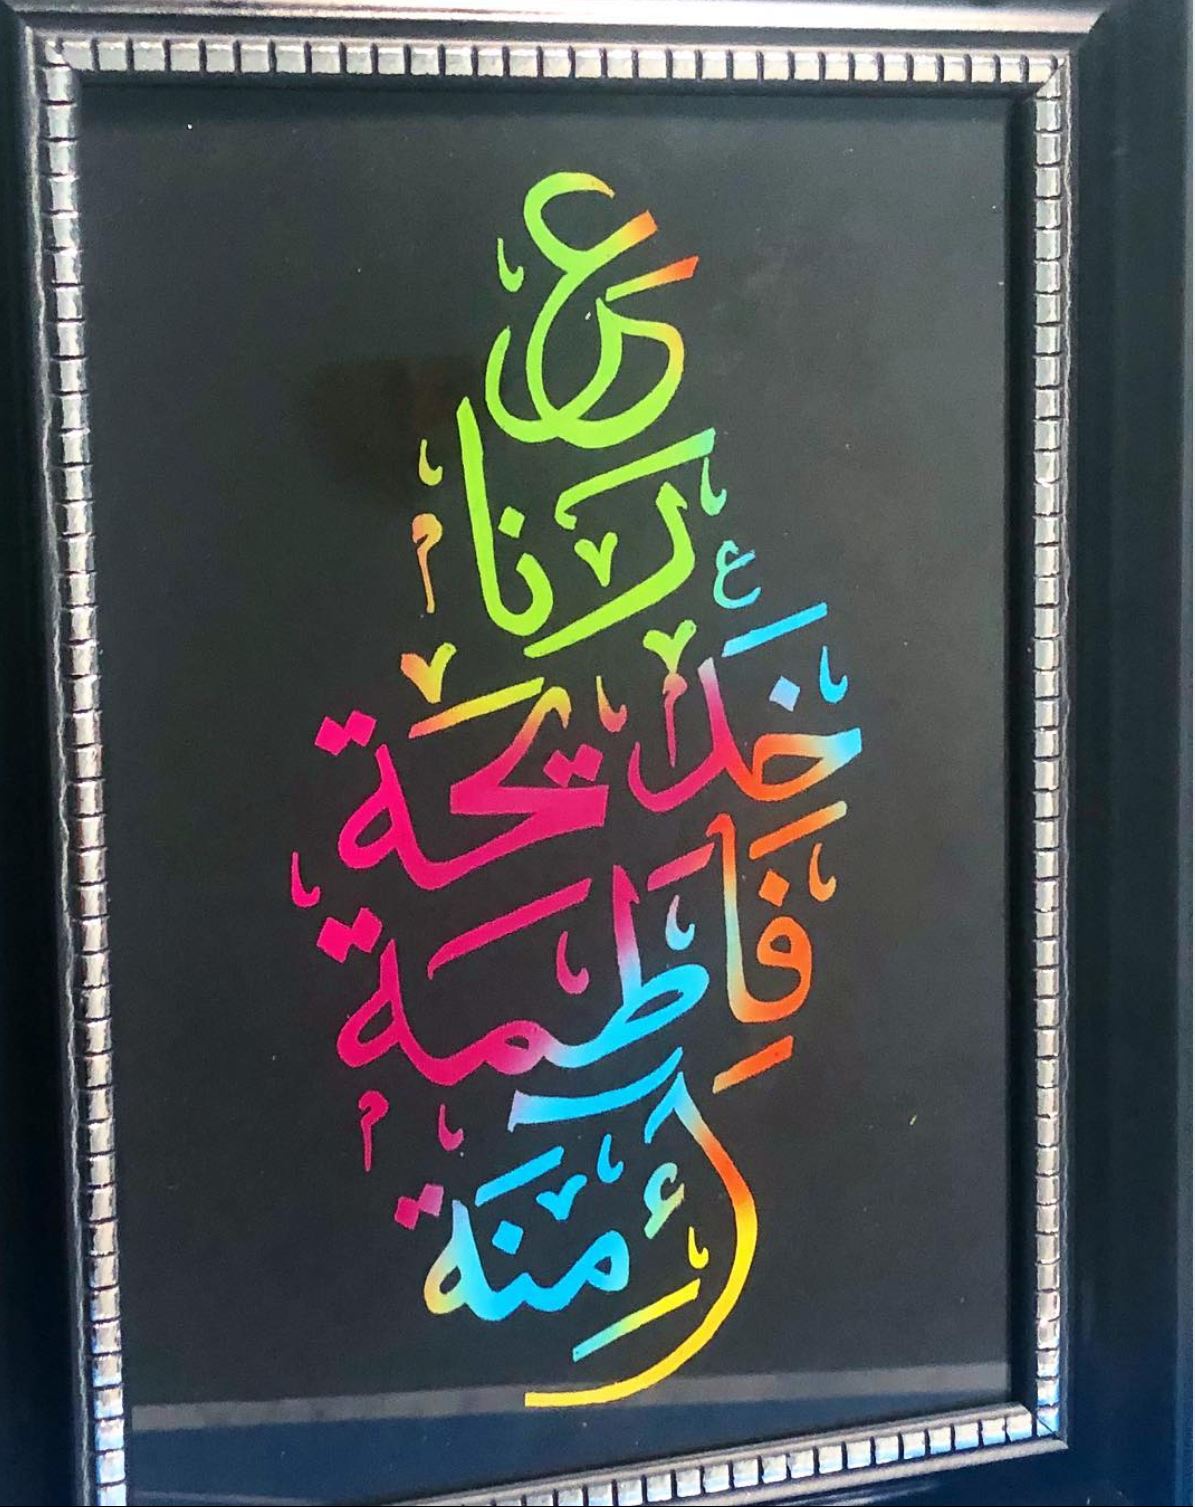 رنا
خديجة
فاطمة
آمنة